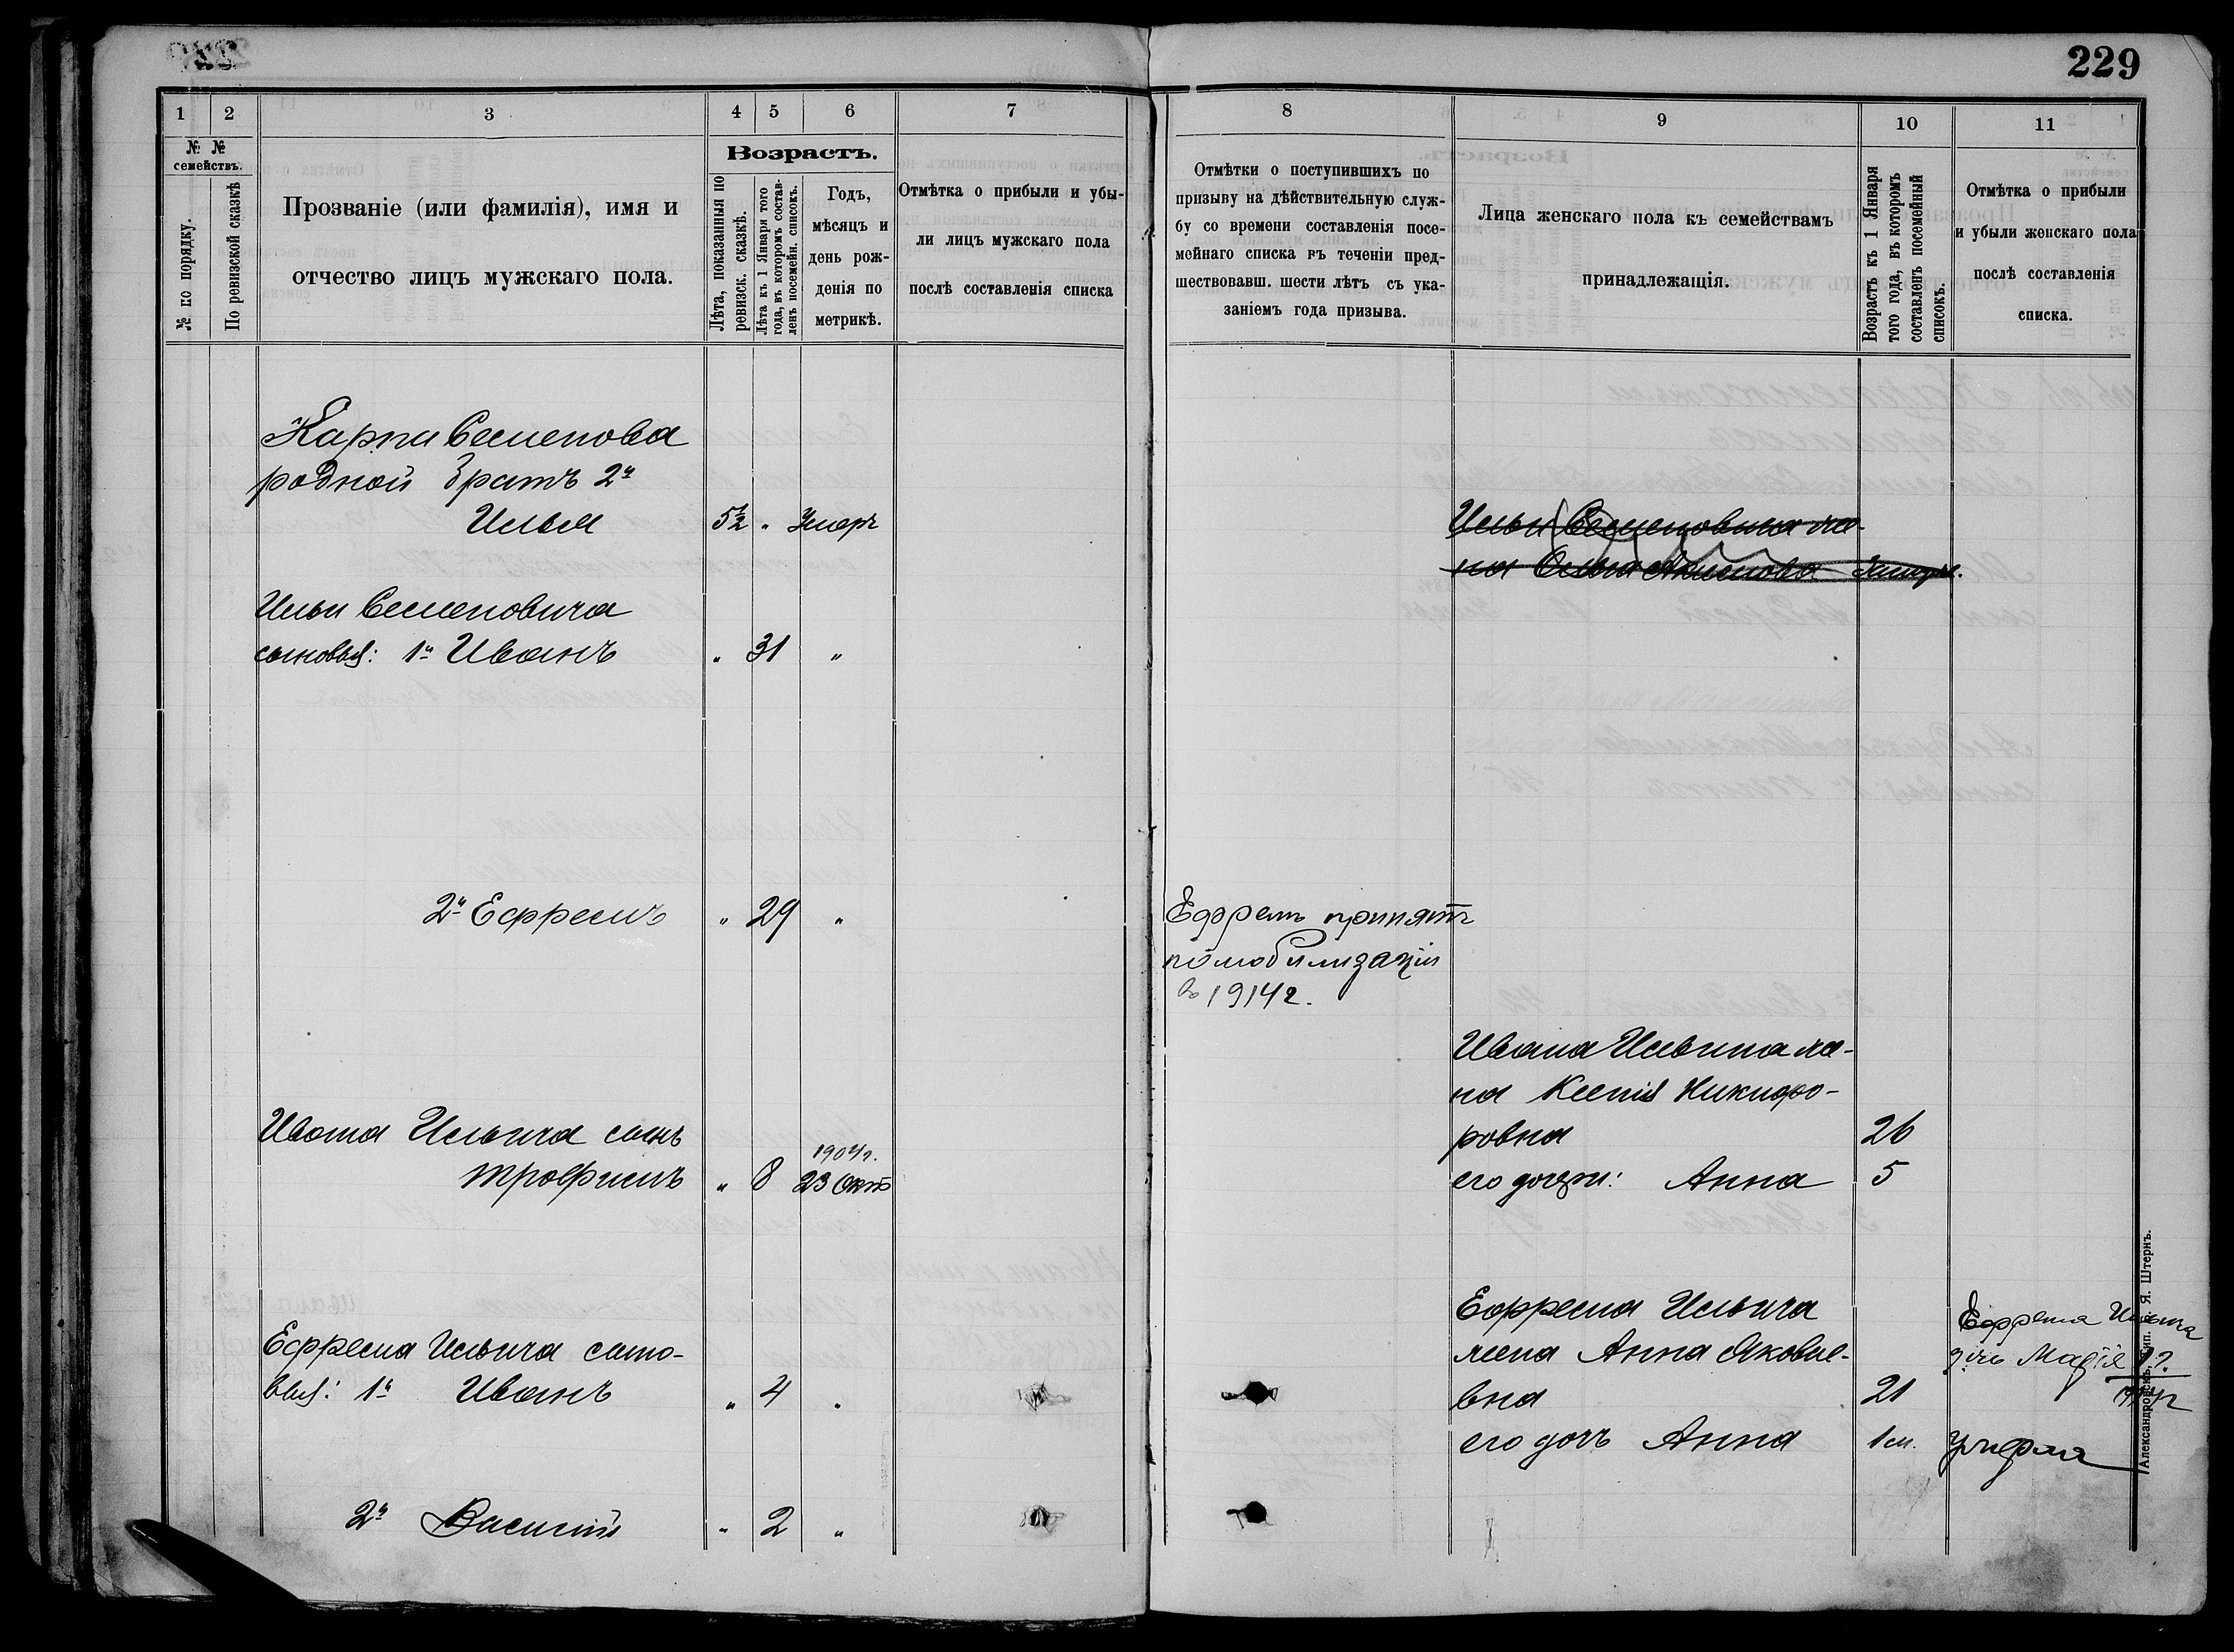 229
1 2 3 4 5 6 7
№ № семействъ.
№ по порядку.
По ревизской сказкѣ
Прозваніе (или фамилія), имя и
отчество лицъ мужскаго пола.
Возрастъ.
Лѣта, показанныя по
ревизск. сказкѣ.
Лѣта къ 1 Января того
года, въ которомъ состав-
ленъ посемейн. списокъ.
Годъ,
мѣсяцъ и
день рож-
денія по
метрикѣ.
Отмѣтка о прибыли и убы-
ли лицъ мужскаго пола
послѣ составленія списка
Карпа Семенова
родной братъ 2й
Илья 5½ " Умеръ
Ильи Семеновича
сыновья: 1й Иванъ " 31 "
2й Ефремъ " 29 "
Ивана Ильича сынъ
1904г.
Трофимъ " 8 23 Окт
Ефрема Ильича сыно-
вья: 1й Иванъ " 4 "
2й Василій " 2 "
8 9 10 11
Отмѣтки о поступившихъ по
призыву на дѣйствительную служ-
бу со времени составленія посе-
мейнаго списка въ теченіи пред-
шествовавш. шести лѣтъ съ ука-
заніемъ года призыва.
Лица женскаго пола къ семействамъ
принадлежащія.
Возрастъ къ 1 Января
того года, въ которомъ
составленъ посемейный
списокъ.
Отмѣтка о прибыли
и убыли женскаго пола
послѣ составленія
списка.
Ильи Семеновича же-
на Акимова
Ефремъ принятъ
по мобилизаціи
в 1914 г.
Ивана Ильича же-
на Ксенія Никифо-
ровна 26
его дочери: Анна 5
Ефрема Ильича
жена Анна Яковле-
вна 21
его дочь Анна 1 м. умерла
Ефрема Ильича
дочь Марія
Александровскъ, тип. Б. Я. Штернъ.